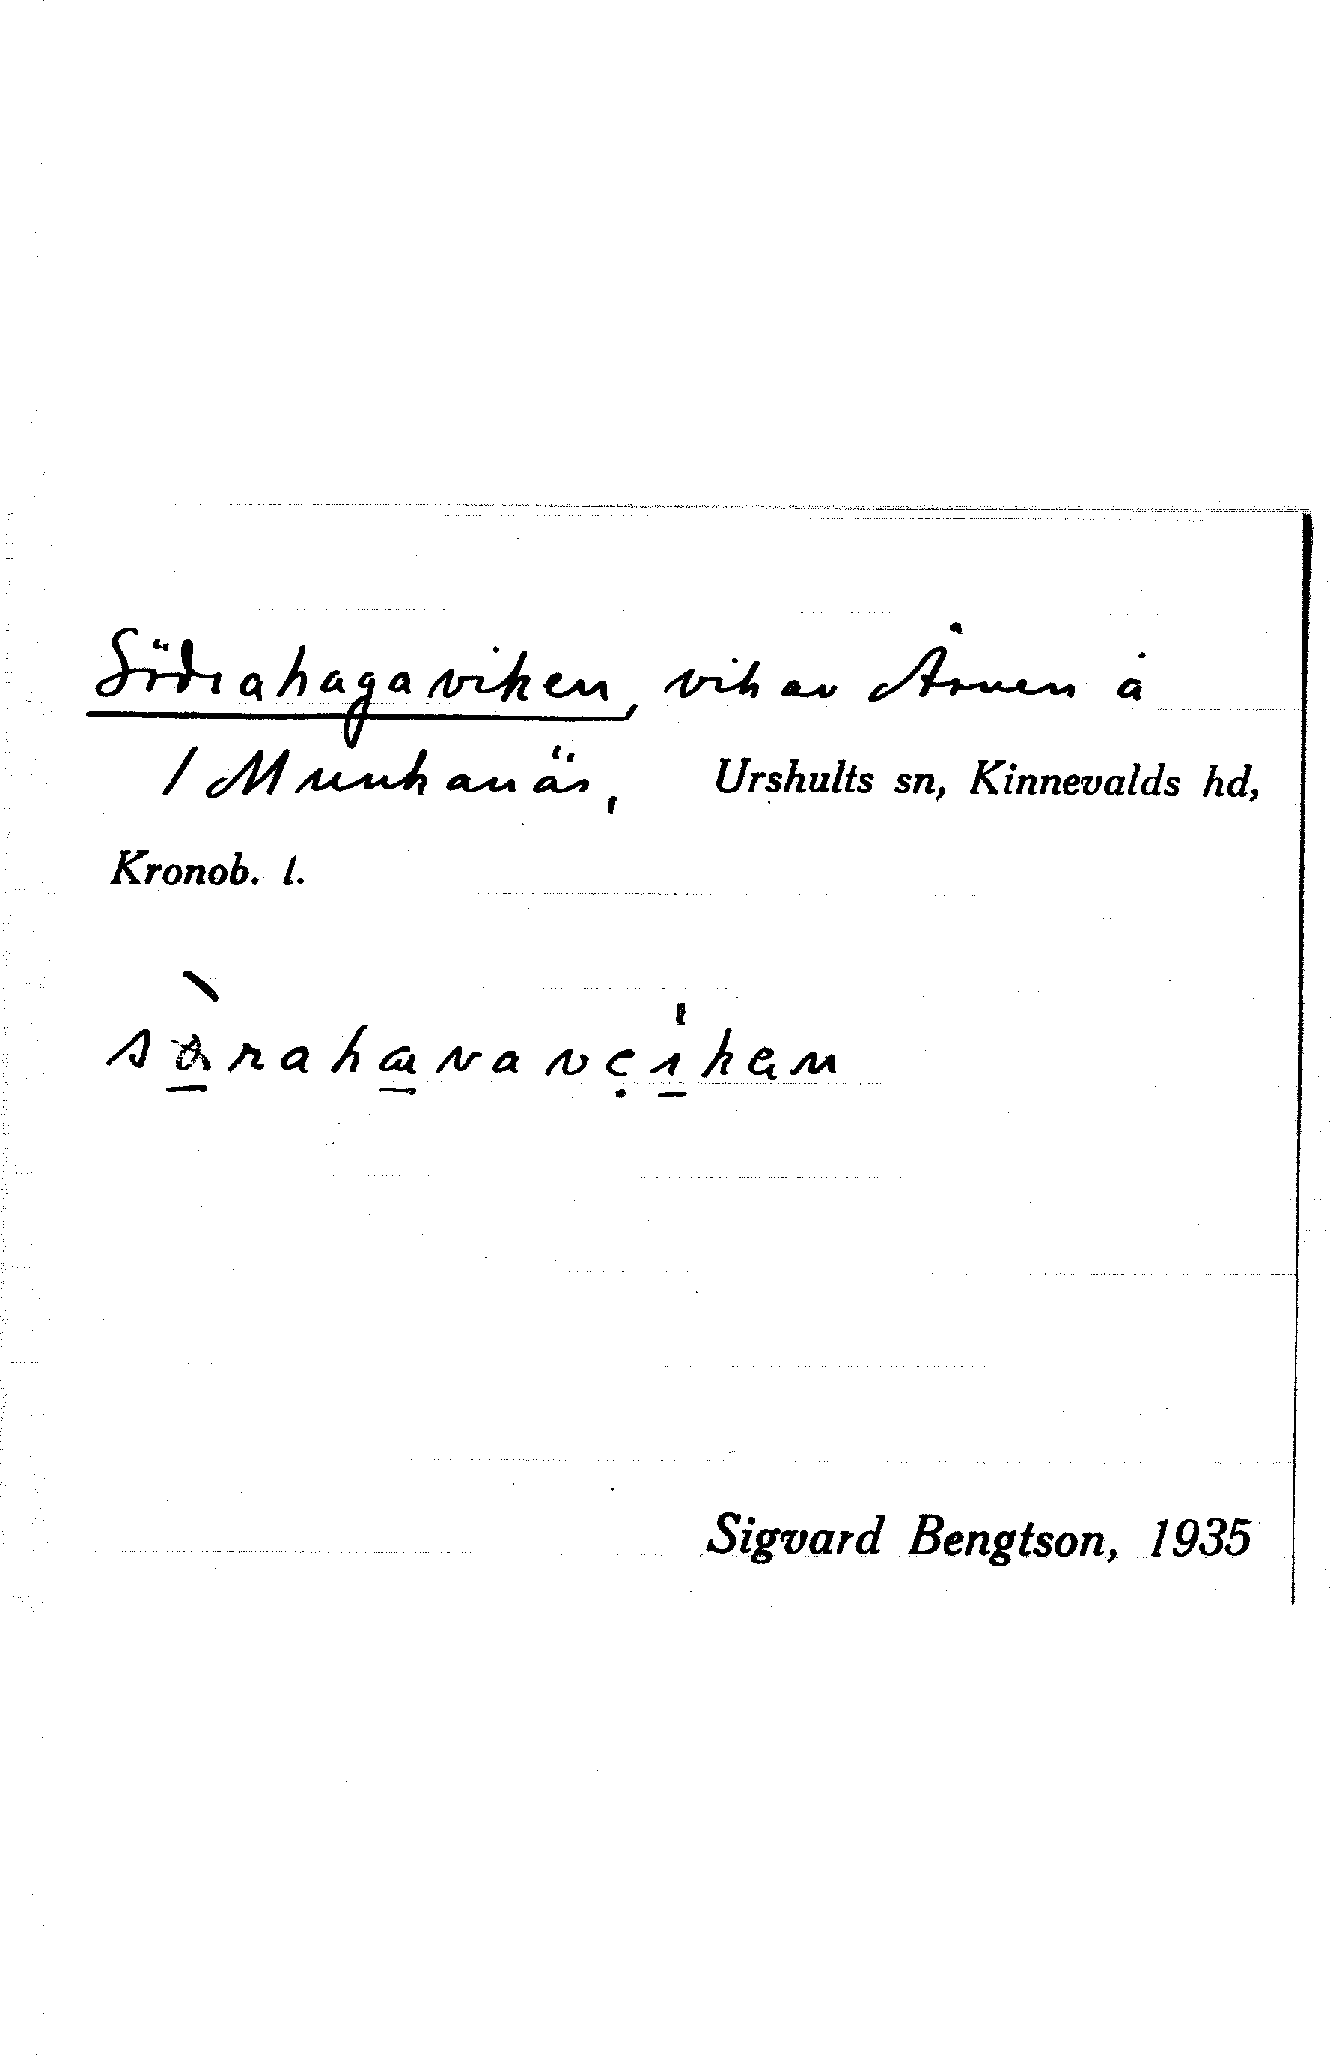 Södrahagaviken, vik av Åsnen å
/ Munkanäs, Urshults sn, Kinnevalds hd,
Kronob. l.
Sigvard Bengtson, 1935